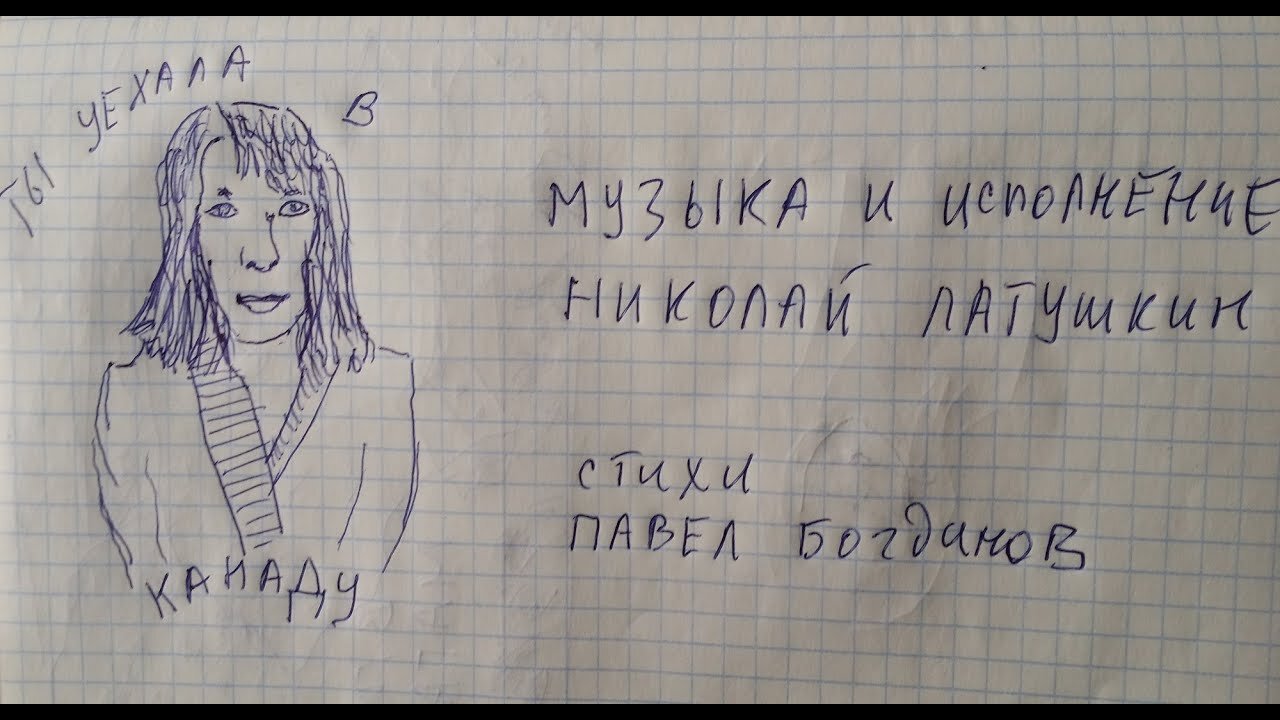 ТЫ УЕХАЛА В
КАНАДУ
МУЗЫКА И ИСПОЛНЕНИЕ
НИКОЛАЙ ЛАТУШКИН
СТИХИ
ПАВЕЛ БОГДАНОВ